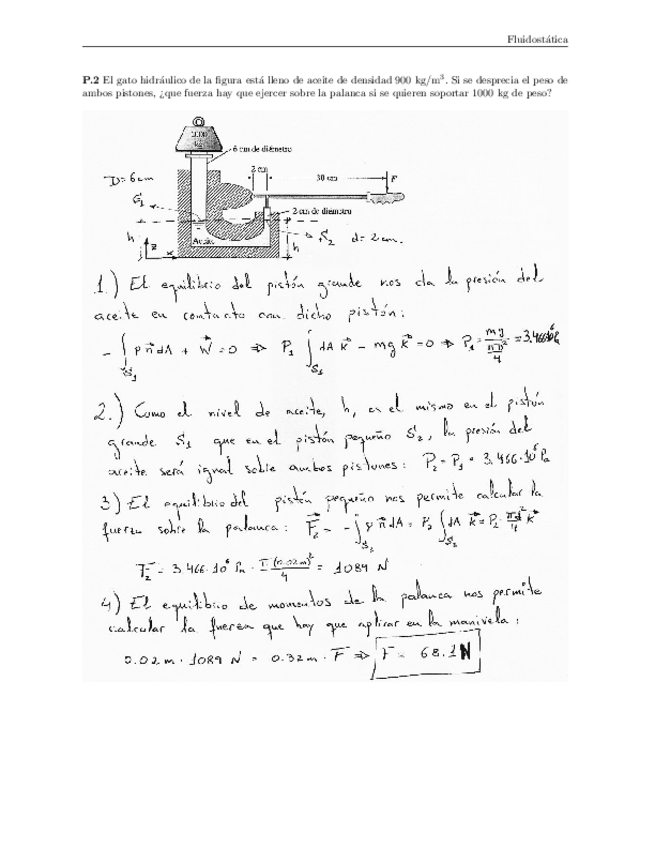 Fluidostática
P.2 El gato hidráulico de la figura está lleno de aceite de densidad 900 kg/m³. Si se desprecia el peso de
ambos pistones, ¿que fuerza hay que ejercer sobre la palanca si se quieren soportar 1000 kg de peso?
1000
kg
6 cm de diámetro
D = 6 cm
2 cm
30 cm
F
S₁
2 cm de diámetro
h
z
x
Aceite
h
S₂ d = 2 cm.
1.) El equilibrio del pistón grande nos da la presión del
aceite en contacto con dicho pistón:
- ∫S₁ p n dA + W = 0 ⇒ P₁ ∫S₁ dA k - mg k = 0 ⇒ P₁ = mg / (πD²/4) = 3.466·10⁶ Pa
2.) Como el nivel de aceite, h, es el mismo en el pistón
grande S₁ que en el pistón pequeño S₂, la presión del
aceite será igual sobre ambos pistones: P₂ = P₁ = 3.466·10⁶ Pa
3) El equilibrio del pistón pequeño nos permite calcular la
fuerza sobre la palanca: F₂ = -∫S₂ p n dA = P₂ ∫S₂ dA k = P₂ · πd²/4 k
F₂ = 3.466·10⁶ Pa · π(0.02m)²/4 = 1089 N
4) El equilibrio de momentos de la palanca nos permite
calcular la fuerza que hay que aplicar en la manivela:
0.02m · 1089 N = 0.32m · F ⇒ F = 68.1 N